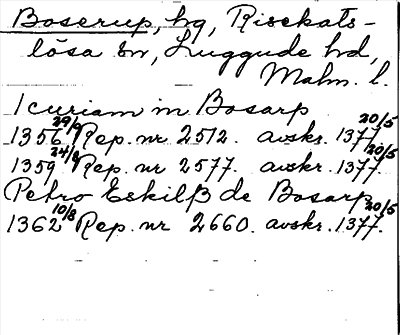 Boserup, hg, Risekats-
lösa sn, Luggude hd,
Malm. l.
1 curiam in Bosarp
1356 29/9 Rep. nr 2512. avskr. 1377 20/5
1359 24/8 Rep. nr 2577. avskr. 1377 20/5
Petro Eskilß de Bosarp
1362 10/8 Rep. nr 2660. avskr. 1377. 20/5